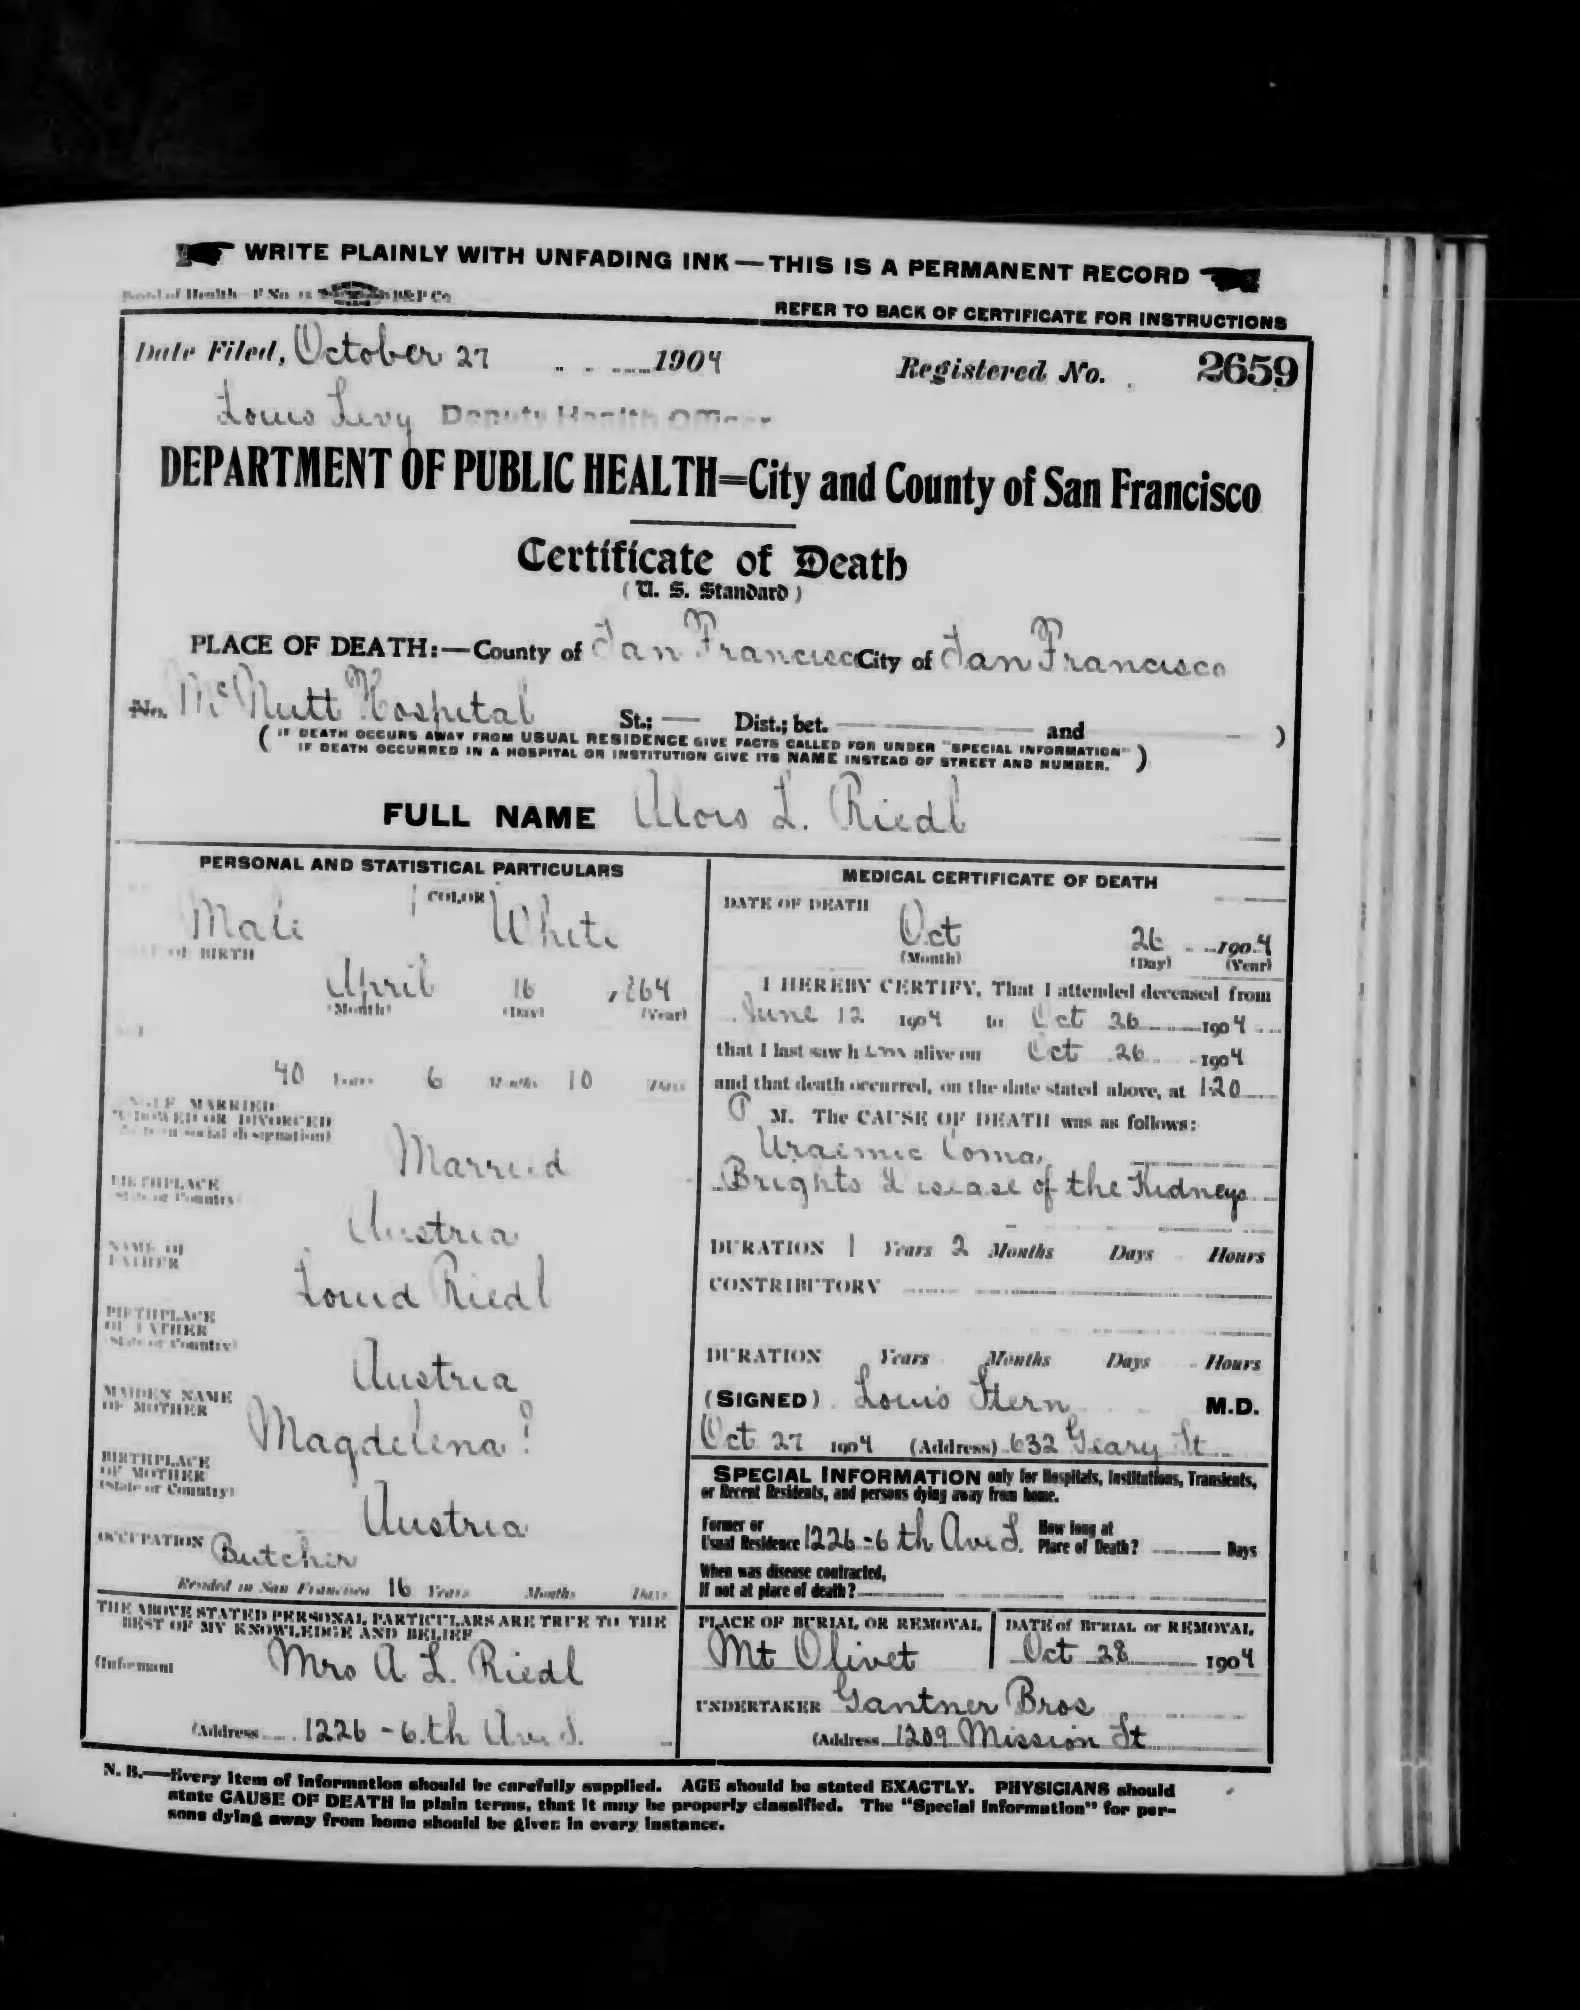 WRITE PLAINLY WITH UNFADING INK—THIS IS A PERMANENT RECORD
Board of Health—F No. 11 B&P Co
REFER TO BACK OF CERTIFICATE FOR INSTRUCTIONS
Date Filed, October 27 1904 Registered No. 2659
Louis Levy Deputy Health Officer
DEPARTMENT OF PUBLIC HEALTH=City and County of San Francisco
Certificate of Death
(U. S. Standard)
PLACE OF DEATH:—County of San Francisco City of San Francisco
No. McNutt Hospital St.; — Dist.; bet. — and )
( IF DEATH OCCURS AWAY FROM USUAL RESIDENCE GIVE FACTS CALLED FOR UNDER "SPECIAL INFORMATION"
IF DEATH OCCURRED IN A HOSPITAL OR INSTITUTION GIVE ITS NAME INSTEAD OF STREET AND NUMBER. )
FULL NAME Alois L. Riedl
PERSONAL AND STATISTICAL PARTICULARS
COLOR
Male White
DATE OF BIRTH
April 16 ,864
(Month) (Day) (Year)
40 Years 6 Months 10 Days
SINGLE MARRIED
WIDOWED OR DIVORCED
(Write in social designation)
Married
BIRTHPLACE
State or Country
Austria
NAME OF
FATHER
Louid Riedl
BIRTHPLACE
OF FATHER
(State or Country)
Austria
MAIDEN NAME
OF MOTHER
Magdelena ?
BIRTHPLACE
OF MOTHER
(State or Country)
Austria
OCCUPATION Butcher
Resided in San Francisco 16 Years Months Days
THE ABOVE STATED PERSONAL PARTICULARS ARE TRUE TO THE
BEST OF MY KNOWLEDGE AND BELIEF
(Informant Mrs A L. Riedl
(Address 1226 - 6.th Ave S.
MEDICAL CERTIFICATE OF DEATH
DATE OF DEATH
Oct 26 1904
(Month) (Day) (Year)
I HEREBY CERTIFY, That I attended deceased from
June 12 1904 to Oct 26 1904
that I last saw him alive on Oct 26 1904
and that death occurred, on the date stated above, at 1.20
P M. The CAUSE OF DEATH was as follows:
Uraemic Coma,
Brights Disease of the Kidneys
DURATION 1 Years 2 Months Days Hours
CONTRIBUTORY
DURATION Years Months Days Hours
(SIGNED) Louis Stern M.D.
Oct 27 1904 (Address) 632 Geary St
SPECIAL INFORMATION only for Hospitals, Institutions, Transients,
or Recent Residents, and persons dying away from home.
Former or
Usual Residence 1226-6th Ave S. How long at
Place of Death? Days
When was disease contracted,
If not at place of death?
PLACE OF BURIAL OR REMOVAL
Mt Olivet
DATE of BURIAL or REMOVAL
Oct 28 1904
UNDERTAKER Gantner Bros
(Address 1209 Mission St
N. B.—Every item of information should be carefully supplied. AGE should be stated EXACTLY. PHYSICIANS should
state CAUSE OF DEATH in plain terms, that it may be properly classified. The "Special Information" for per-
sons dying away from home should be given in every instance.